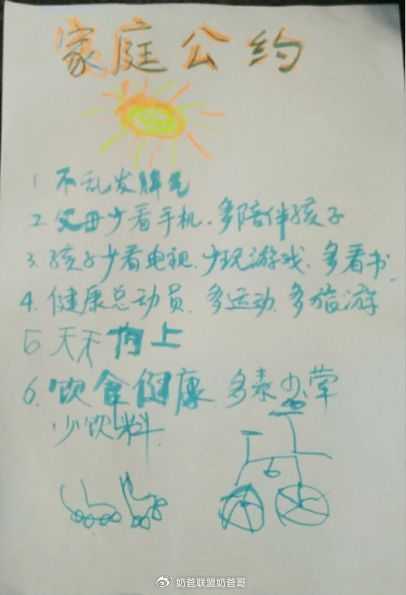 家庭公约
1 不乱发脾气
2. 父母少看手机、多陪伴孩子
3. 孩子少看电视、少玩游戏、多看书
4. 健康总动员、多运动、多旅游
5 天天向上
6. 饮食健康、多素少荤
少饮料
奶爸联盟奶爸哥